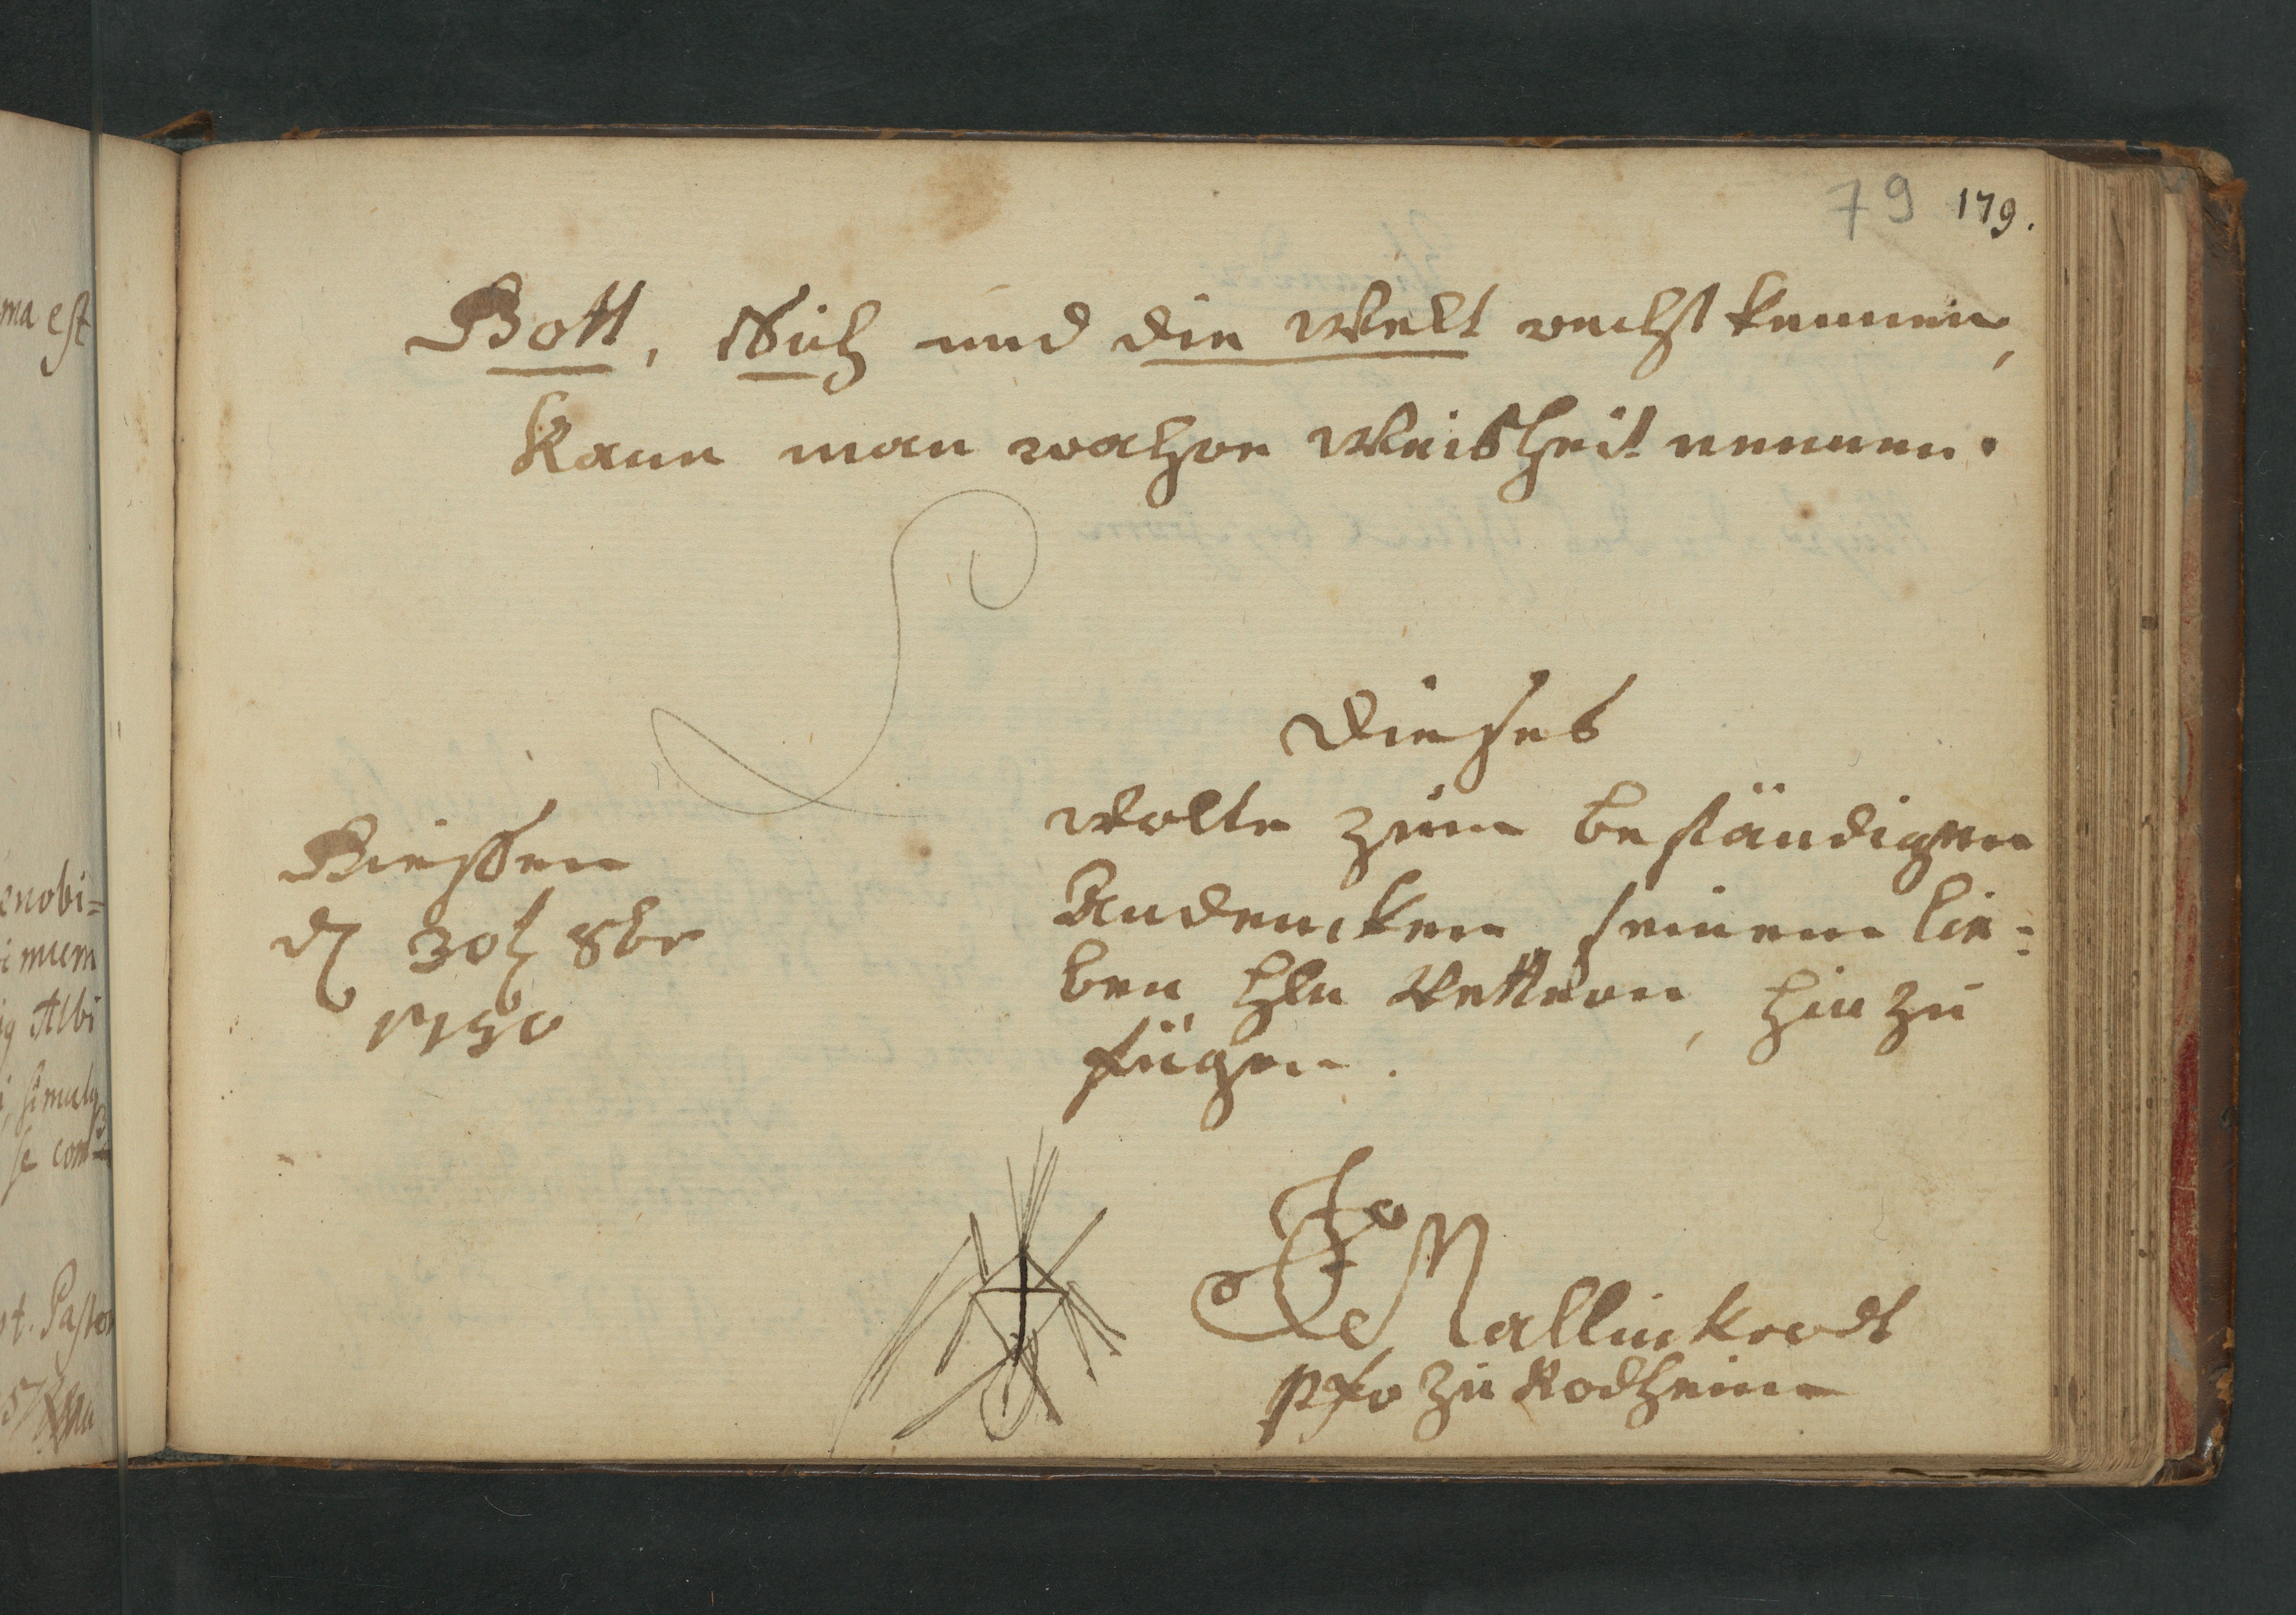 79 179.
Gott, Sich und die Welt recht kennen,
Kann man wahre Weisheit nennen.
Dieses
wolte zum beständigen
Andencken seinem lie:
ben Hln Vettern, hinzu
fügen.
Giessen
d 30t 8br
1750
Mallinckrodt
Pfr zu Rodheim
ma est
enobi=
mum
Albi
simulq
se com=
t. Pastor